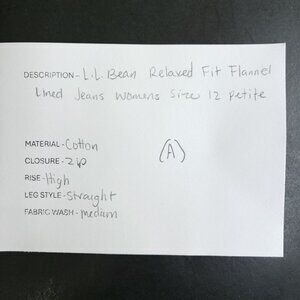 DESCRIPTION - L.L. Bean Relaxed Fit Flannel
Lined Jeans Womens Size 12 Petite
MATERIAL - Cotton
CLOSURE - Zip
(A)
RISE - High
LEG STYLE - Straight
FABRIC WASH - medium